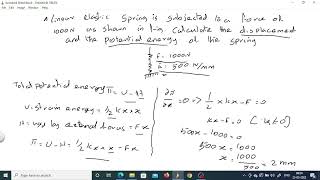 A linear elastic spring is subjected to a force of
1000N as shown in fig. Calculate the displacement
and the potential energy of the spring
F = 1000N
k = 500 N/mm
Total potential energy π = U-W
U = strain energy = 1/2 kx x x
W = work by external forces = Fx
π = U-W = 1/2 kxx - Fx
∂π/∂x = 0 => 1/2 x kx - F = 0
kx - F = 0
500x - 1000 = 0
500x = 1000
x = 1000/500 = 2 mm
Type here to search